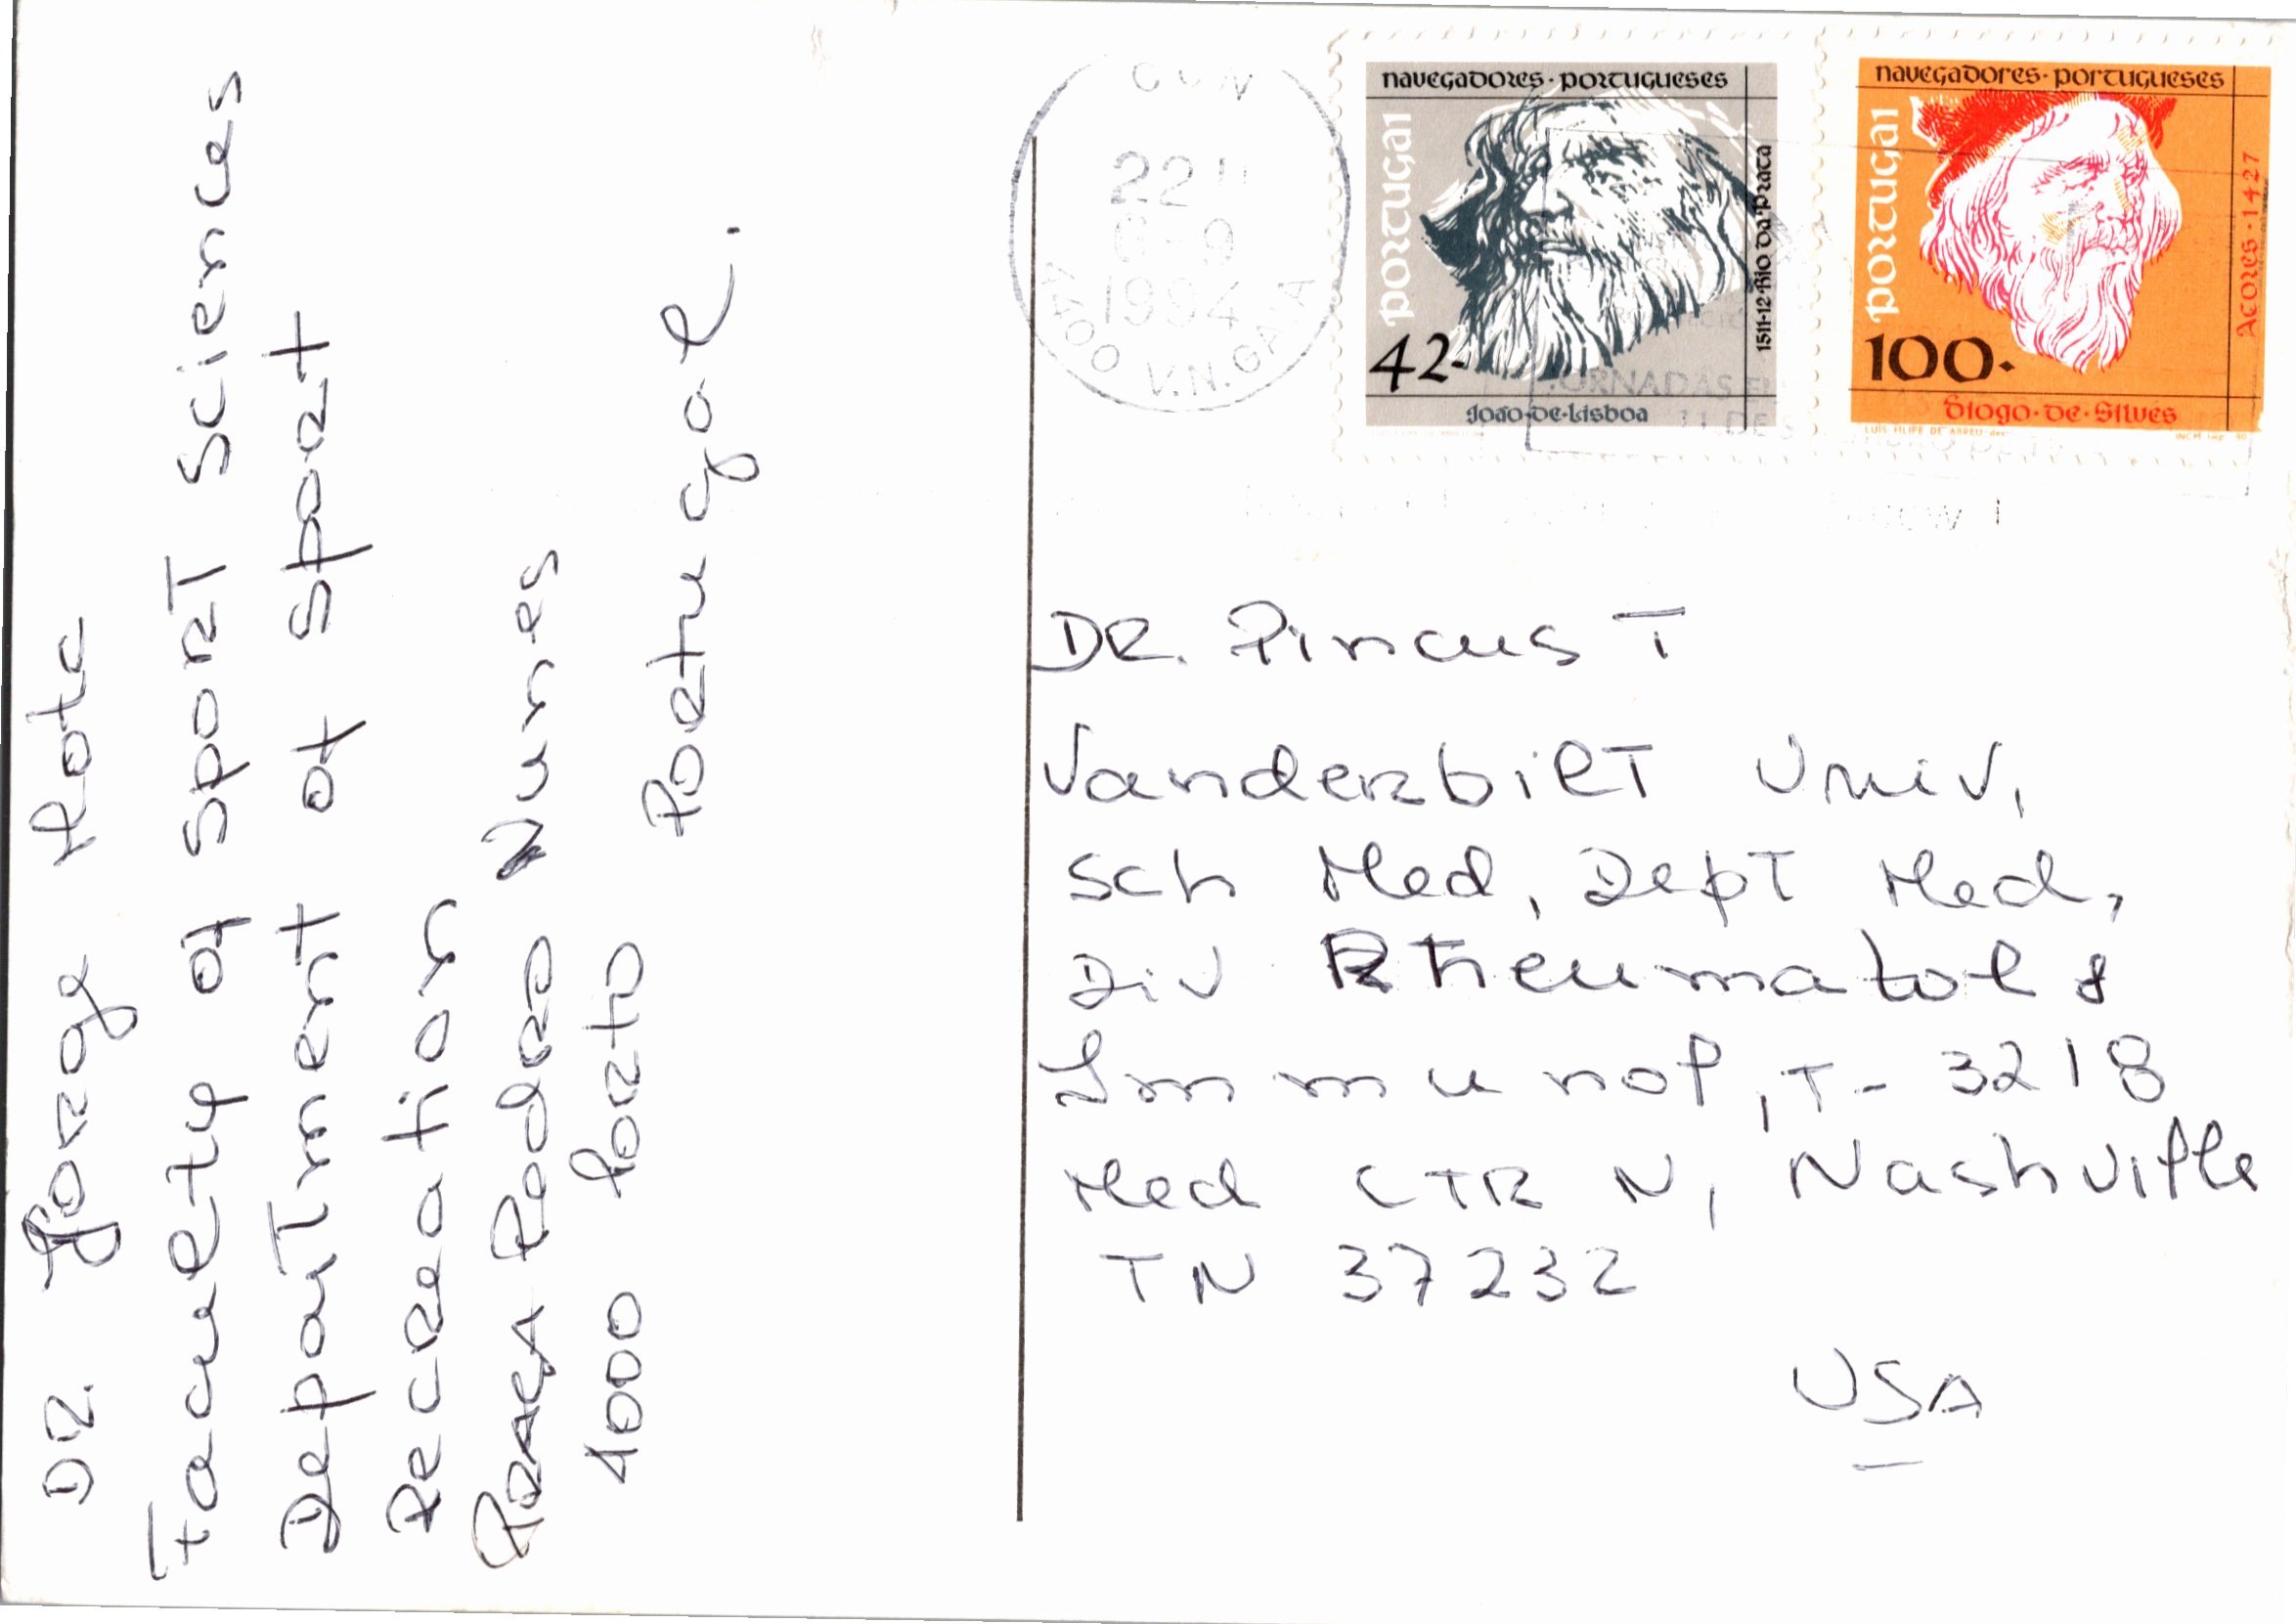 DR. Jorge Mota
Faculty of Sport Sciences
Department of Sport
Recreation
PRAÇA Pedro Nunes
4000 Porto
Portugal.
22H
6-9
1994
4400 V.N.GAIA
navegadores·portugueses
portugal
1511-12 Rio da Prata
42·
João·de·Lisboa
navegadores·portugueses
portugal
Açores·1427
100·
Diogo·de·Silves
LUIS FILIPE DE ABREU des.
DR. Pincus T
Vanderbilt Univ,
Sch Med, Dept Med,
Div Rheumatol &
Immunol, T- 3218
Med CTR N, Nashville
TN 37232
USA